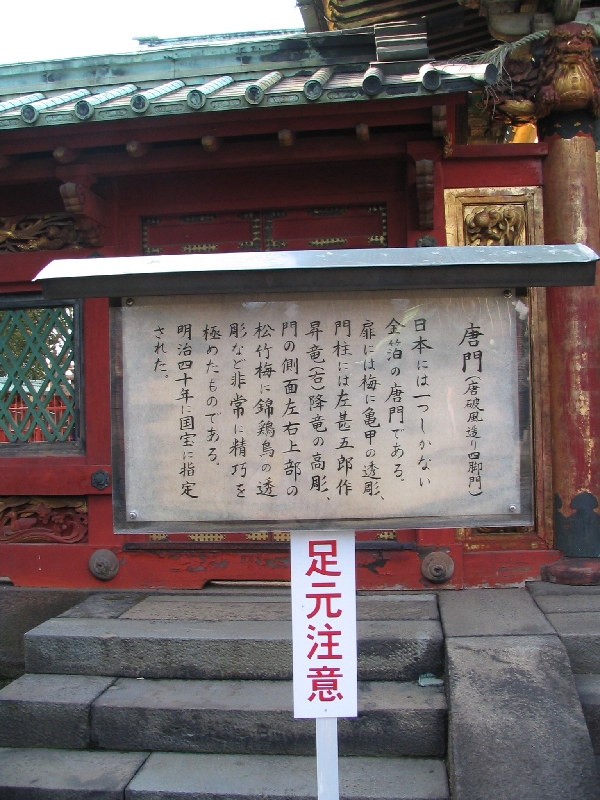 唐門（唐破風造り四脚門）
日本には一つしかない
金箔の唐門である。
扉には梅に亀甲の透彫、
門柱には左甚五郎作
昇竜（右）降竜の高彫、
門の側面左右上部の
松竹梅に錦鶏鳥の透
彫など非常に精巧を
極めたものである。
明治四十年に国宝に指定
された。
足元注意